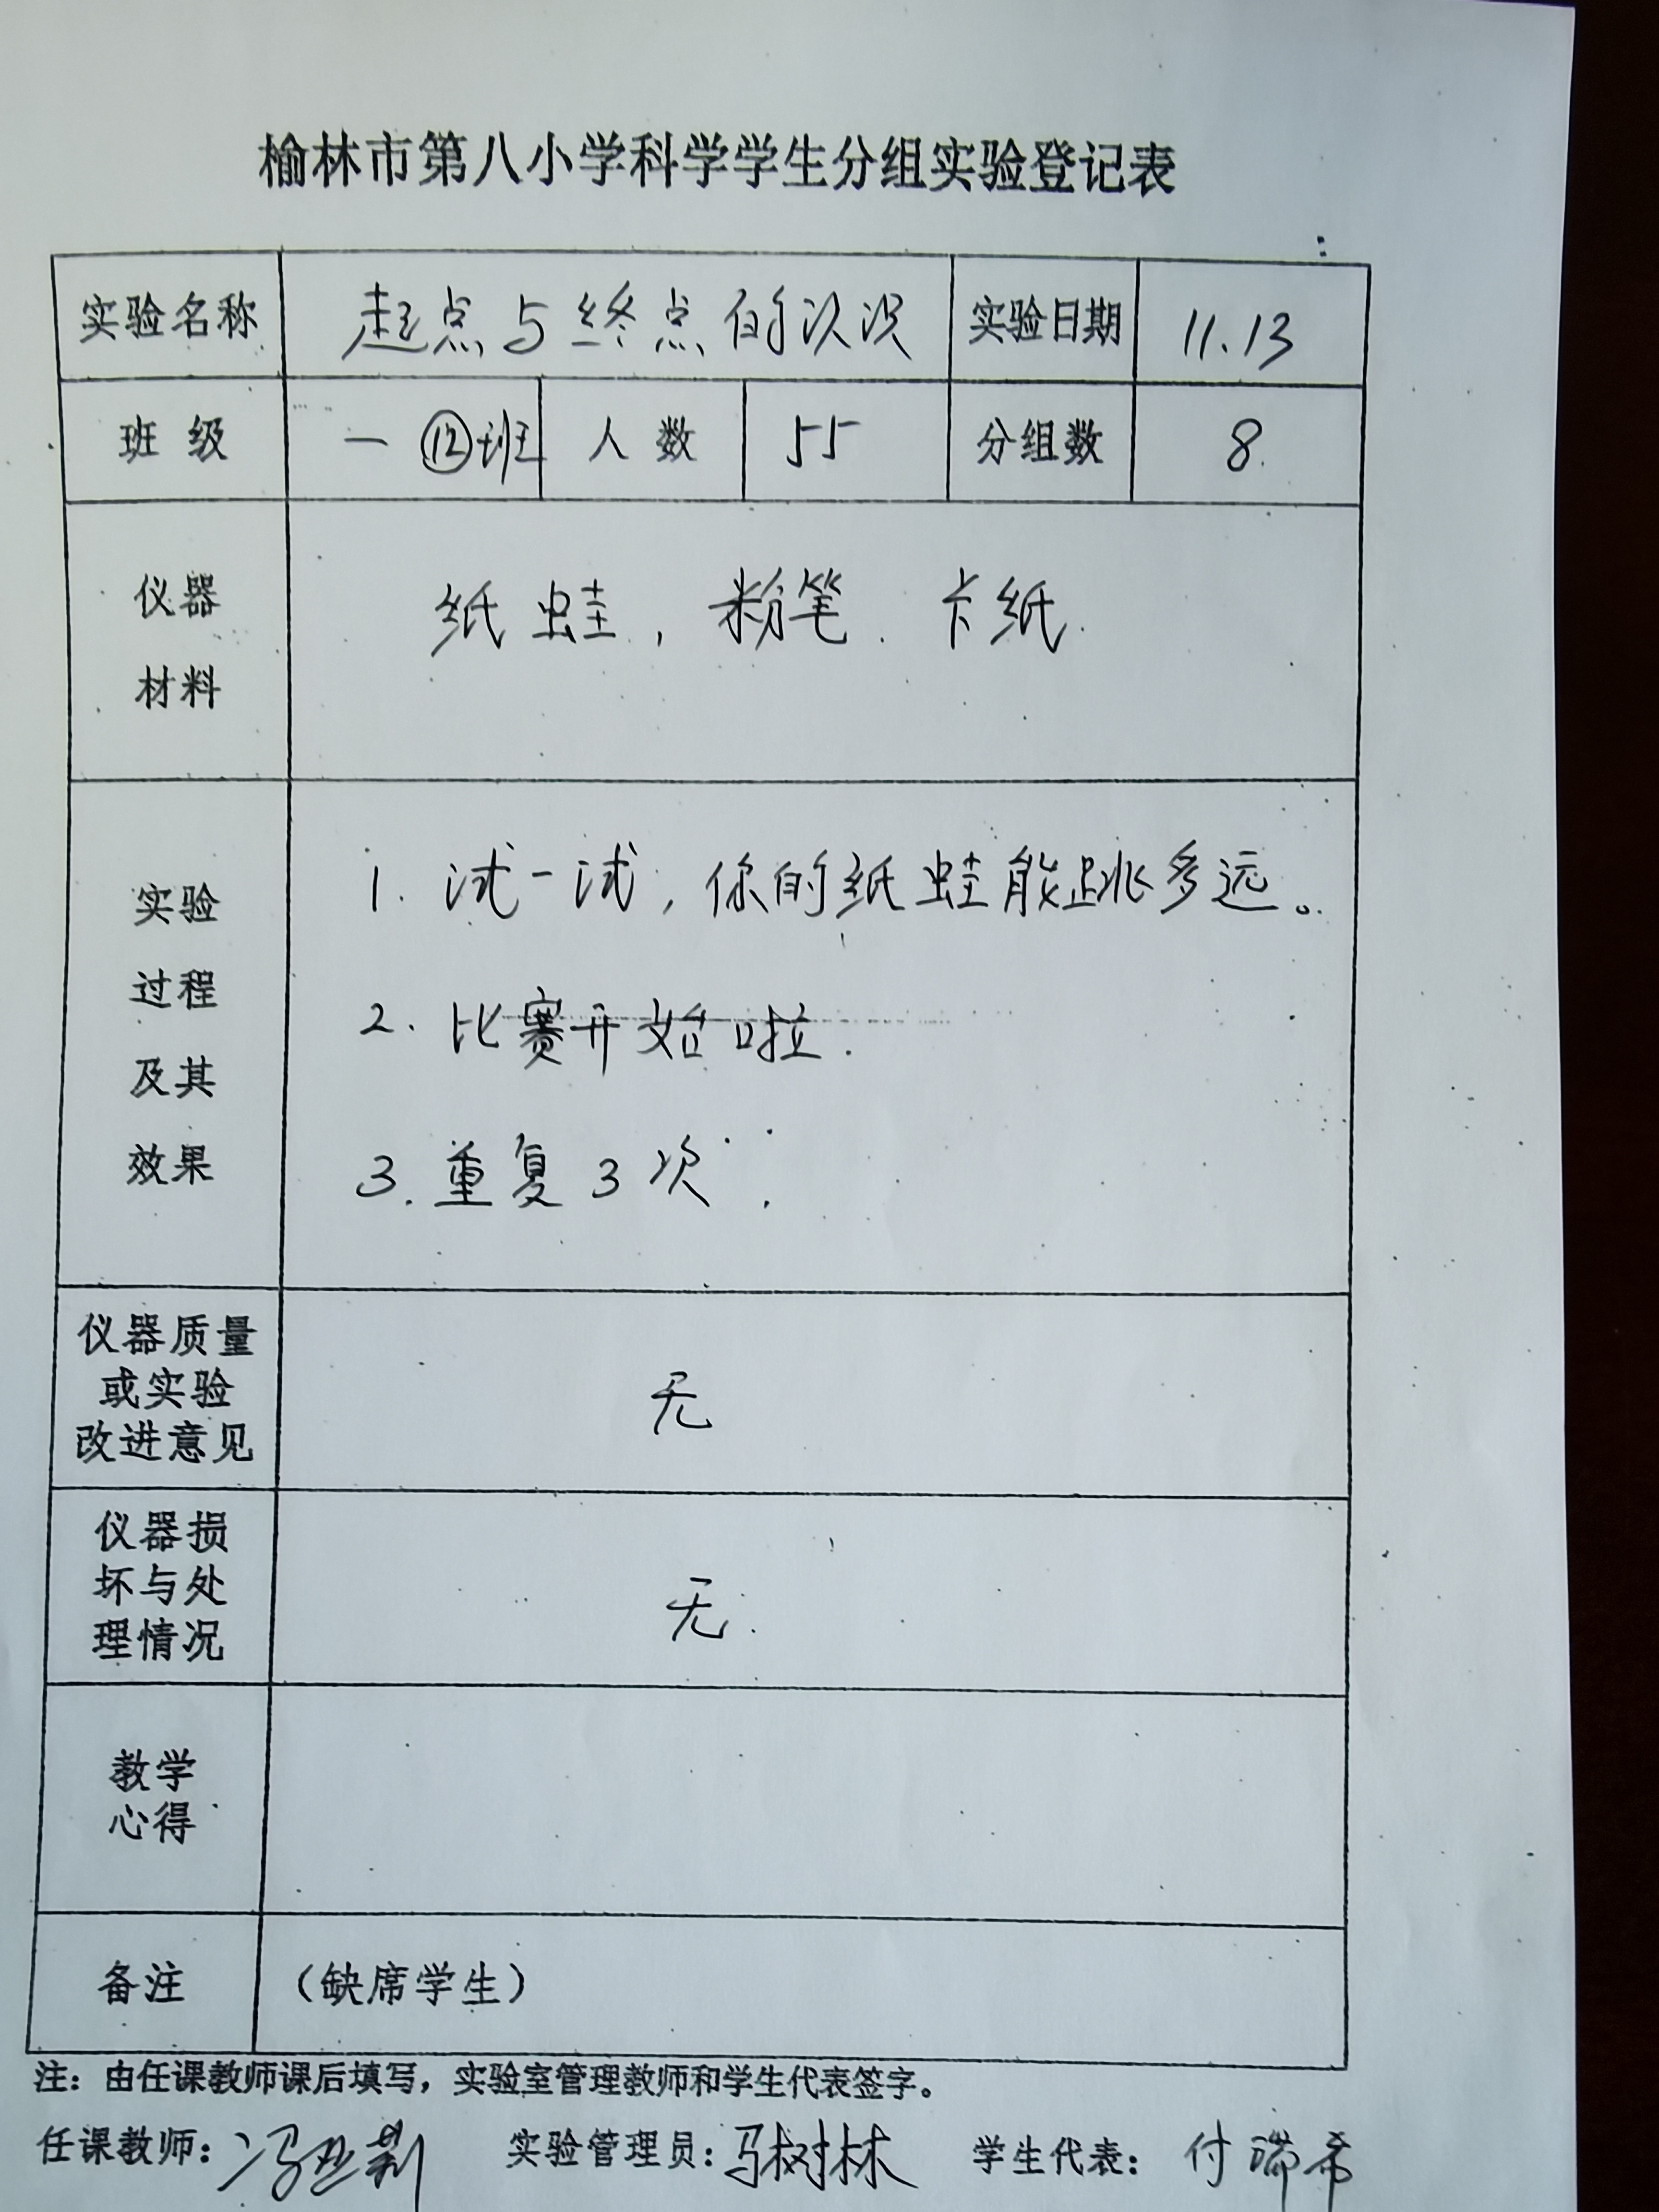 榆林市第八小学科学学生分组实验登记表
实验名称 起点与终点的次次 实验日期 11.13
班级 一⑫班 人数 55 分组数 8.
仪器
材料
纸蛙,粉笔.卡纸.
实验
过程
及其
效果
1.试一试,你的纸蛙能跳多远。
2.比赛开始啦.
3.重复3次.
仪器质量
或实验
改进意见
无
仪器损
坏与处
理情况
无.
教学
心得
备注 (缺席学生)
注:由任课教师课后填写,实验室管理教师和学生代表签字。
任课教师: 实验管理员:马树林 学生代表:付瑞希